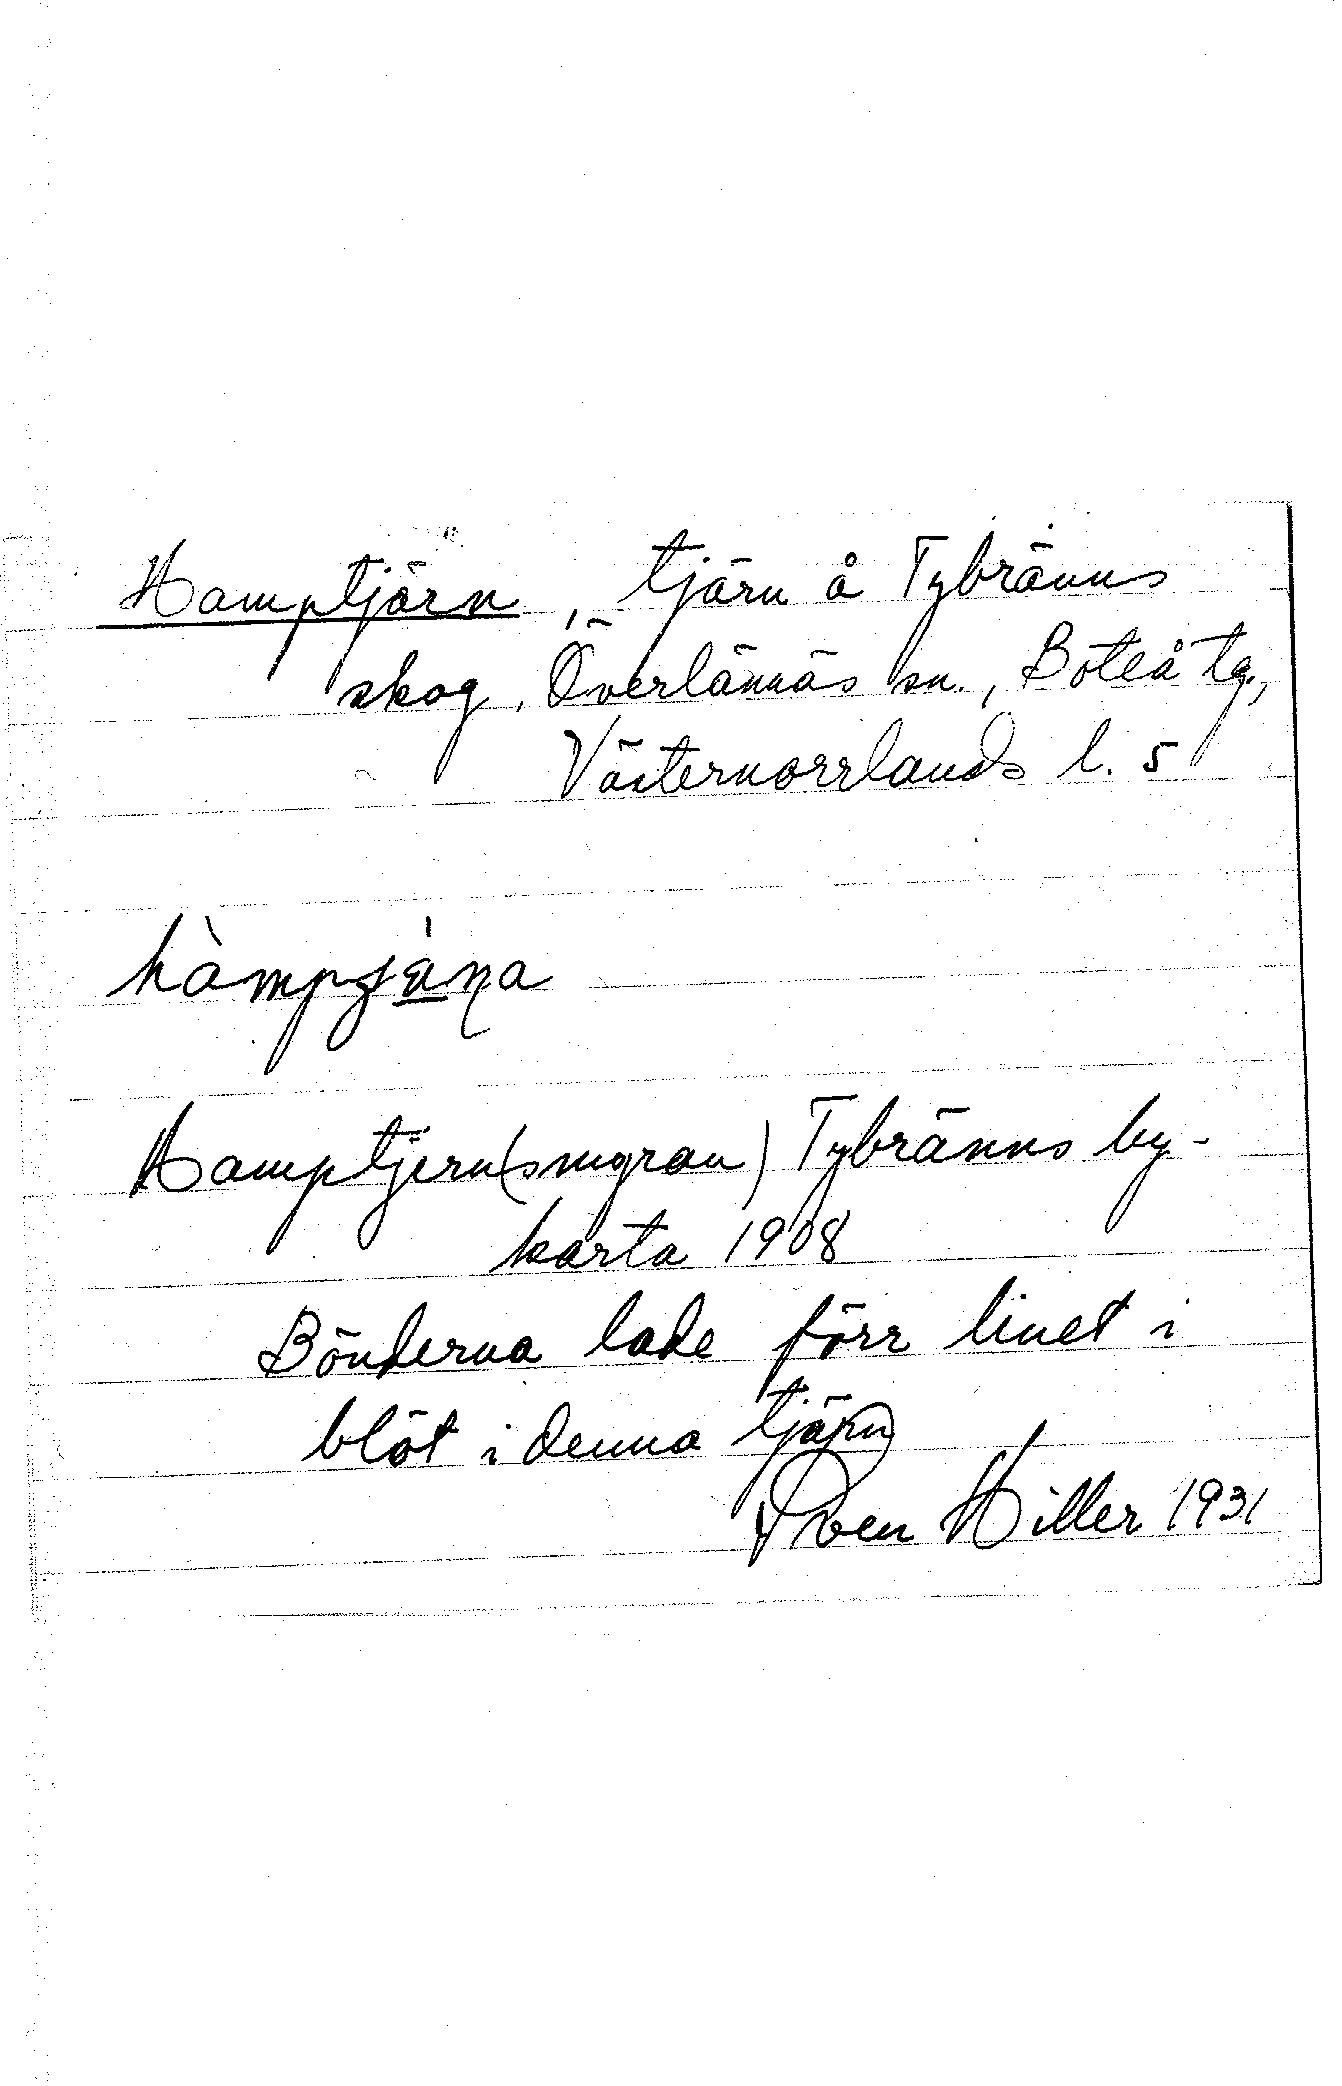 Hamptjärn, tjärn å Tybränns
skog, Överlännäs sn., Boteå tg.,
Västernorrlands l. 5
Hamptjern(smyran) Tybränns by-
karta 1908
Bönderna lade förr linet i
blöt i denna tjärn
Sven Hiller 1931